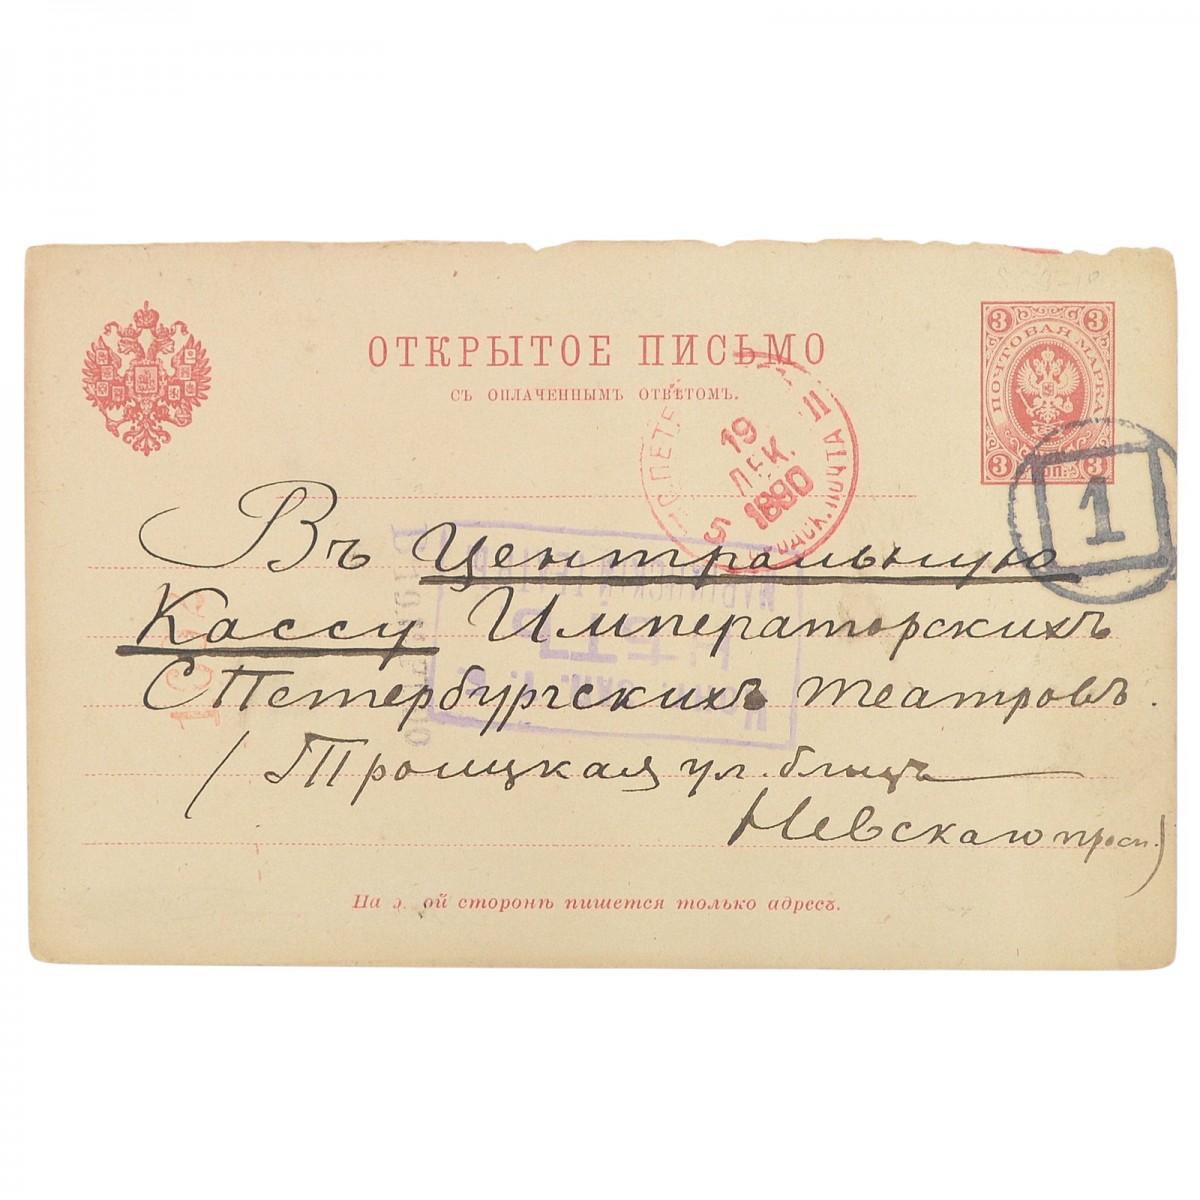 ОТКРЫТОЕ ПИСЬМО
СЪ ОПЛАЧЕННЫМЪ ОТВѢТОМЪ.
3 3
ПОЧТОВАЯ МАРКА
3 КОП. 3
19
ДЕК.
1890
5
ГОРОДСК. ПОЧТА II
1
Въ Центральную
Кассу Императорскихъ
СПетербургскихъ театровъ.
(Троицкая ул. близъ
Невскаго просп.)
На этой сторонѣ пишется только адресъ.